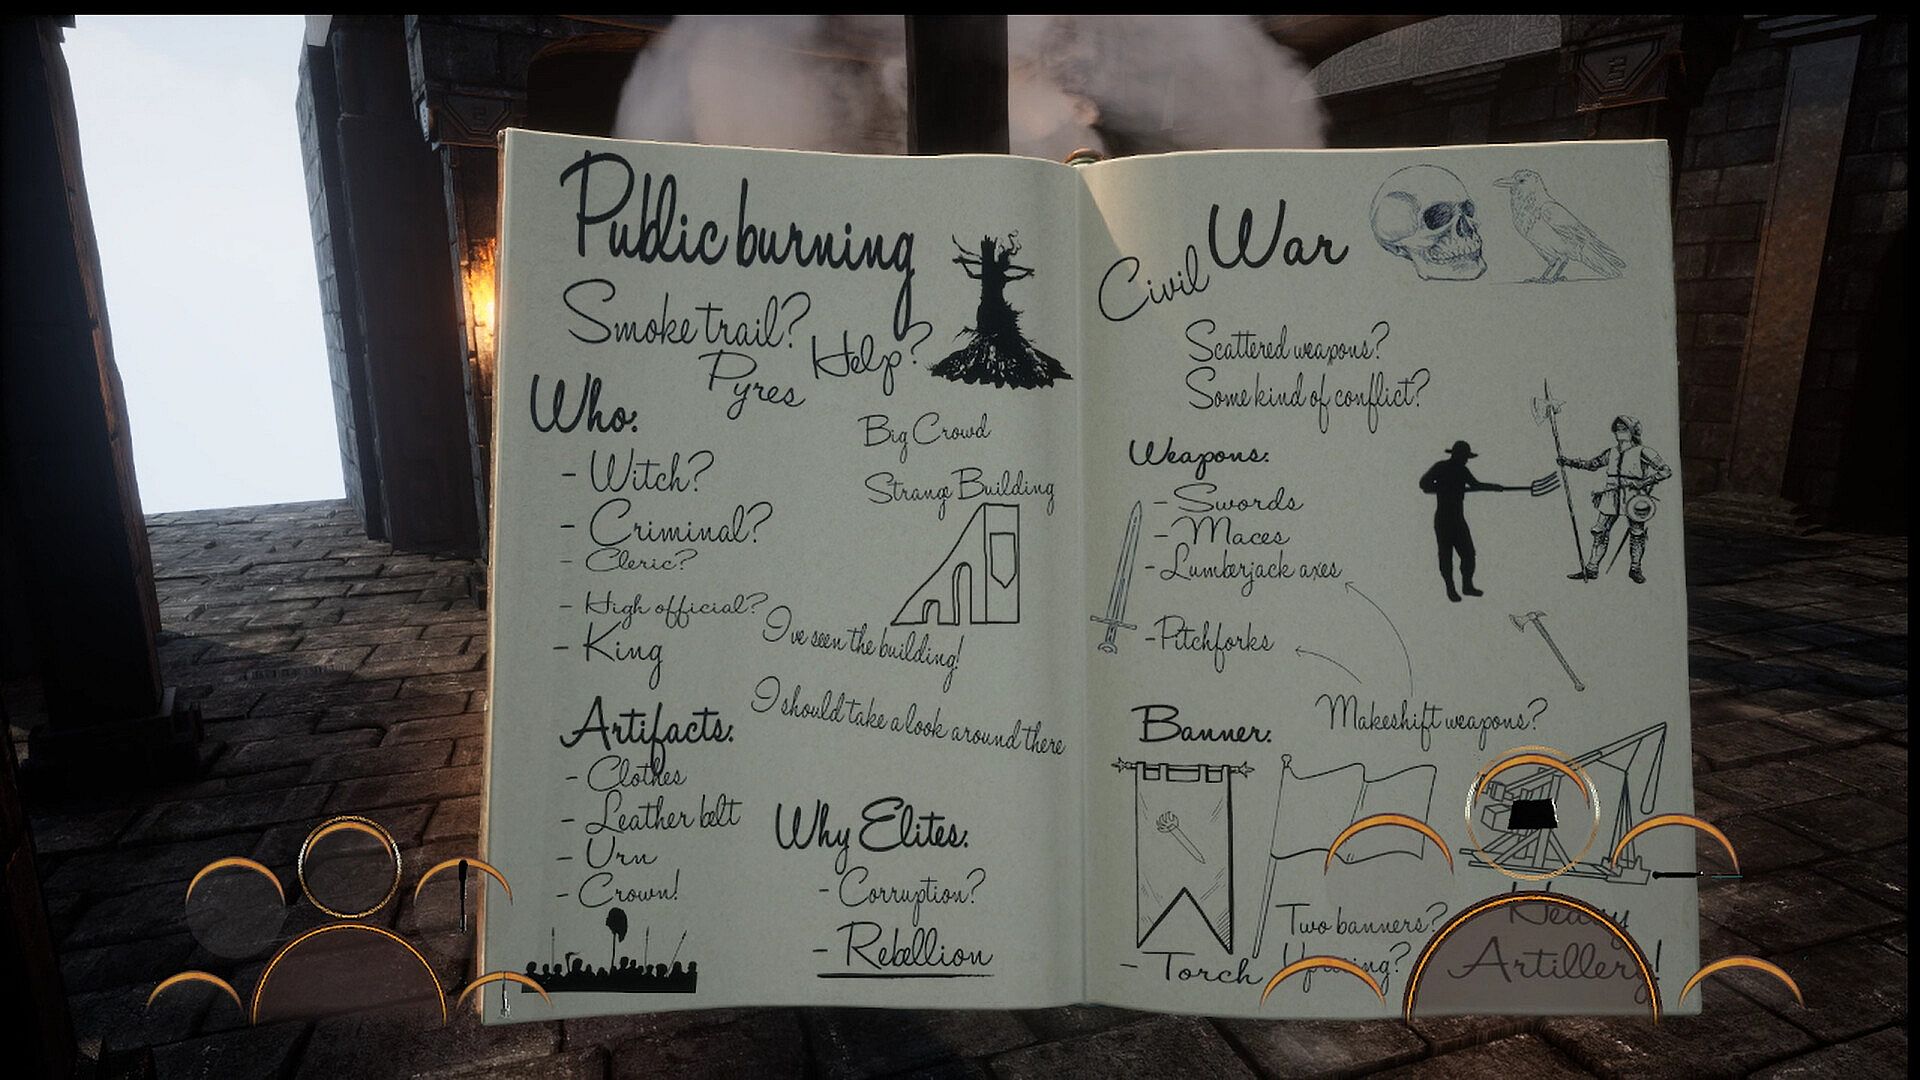 Public burning
Smoke trail?
Pyres
Help?
Who:
- Witch?
- Criminal?
- Cleric?
- High official?
- King
Big Crowd
Strange Building
I've seen the building!
I should take a look around there
Artifacts:
- Clothes
- Leather belt
- Urn
- Crown!
Why Elites:
- Corruption?
- Rebellion
Civil War
Scattered weapons?
Some kind of conflict?
Weapons:
- Swords
- Maces
- Lumberjack axes
- Pitchforks
Makeshift weapons?
Banner:
- Torch
Two banners?
Uprising?
Heavy
Artillery!